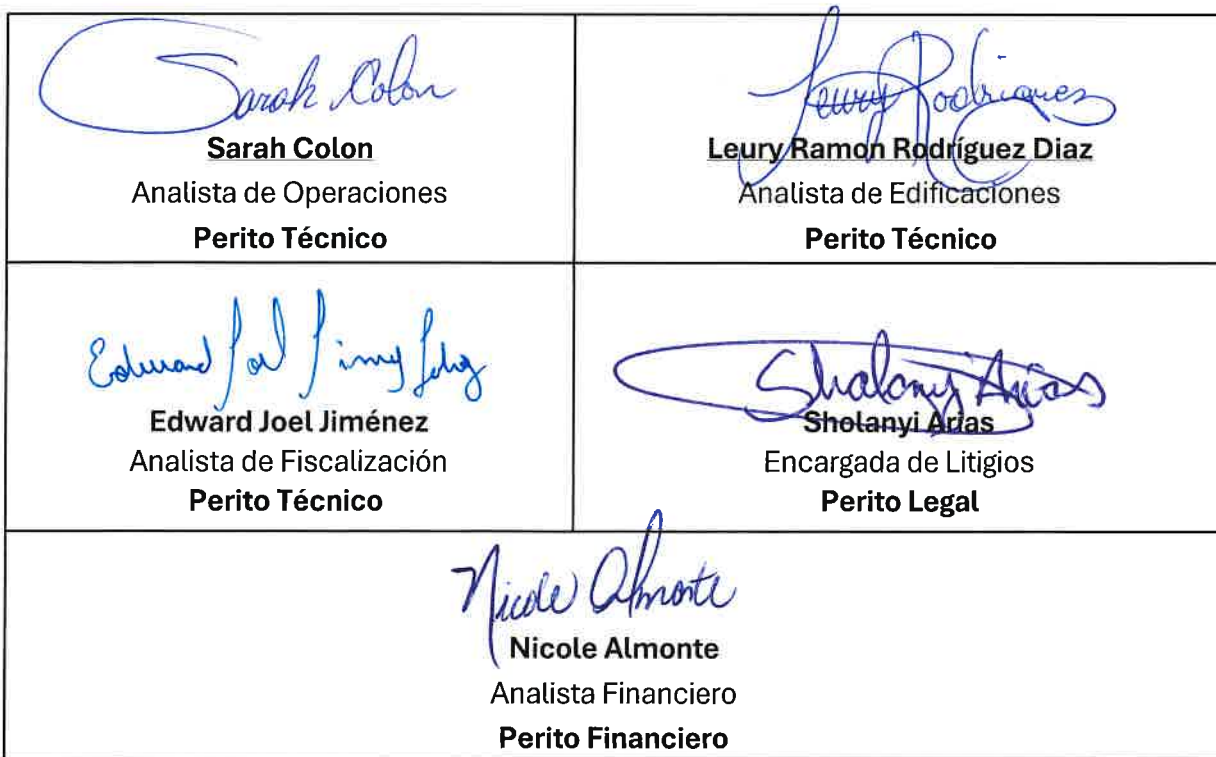 Sarah Colon
Sarah Colon
Analista de Operaciones
Perito Técnico
Leury Rodriguez
Leury Ramon Rodríguez Diaz
Analista de Edificaciones
Perito Técnico
Edward Joel
Edward Joel Jiménez
Analista de Fiscalización
Perito Técnico
Sholanyi Arias
Sholanyi Arias
Encargada de Litigios
Perito Legal
Nicole Almonte
Nicole Almonte
Analista Financiero
Perito Financiero